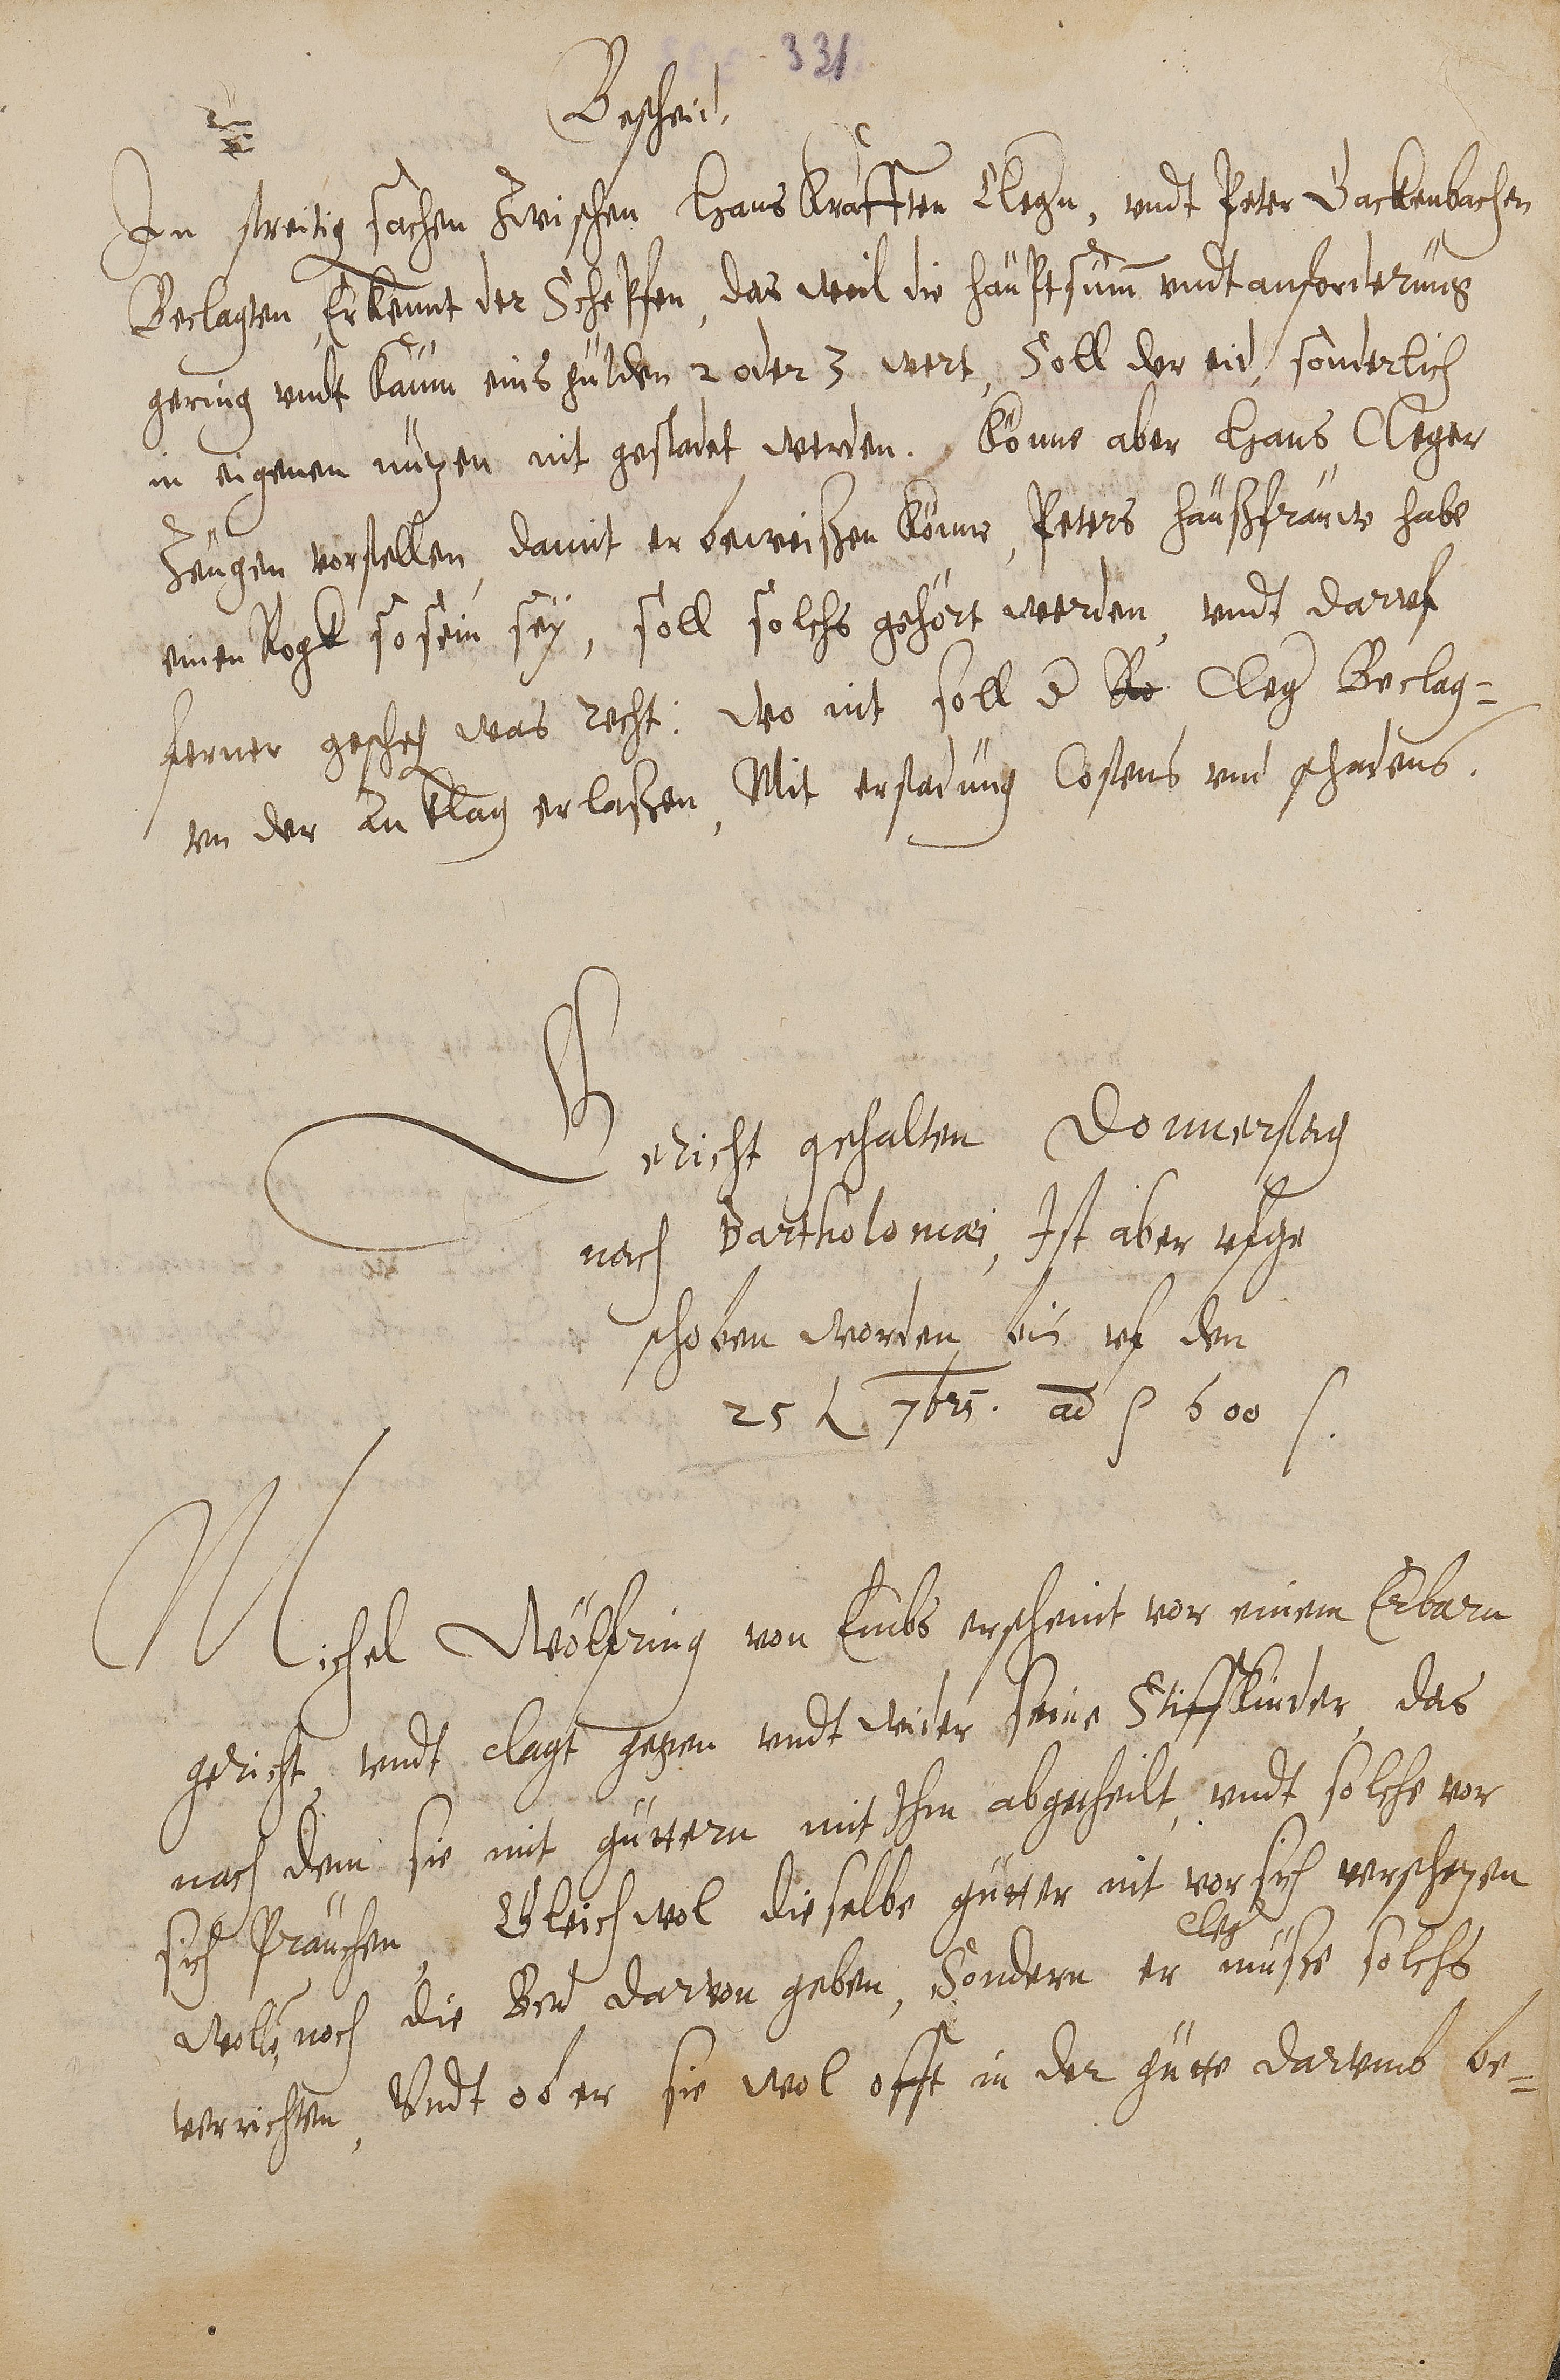 331
Bescheid.
In streitig sachen Zwischen Hans Krafften Clegn, vndt Peter Backenbachen
Beclagten, Erkennt der Schepfen, das weil die hauptsum vndt anforderung
gering vndt kaum eins gulden 2 oder 3 wert, Soll der eid, sonderlich
in eigenen nutzen nit gestadet werden. Könne aber Hans Cleger
Zeugen vorstellen, damit er beweißen könne, Peters haußfrauw habe
einen Rogk so sein sey, soll solchs gehört werden, vndt daruf
ferner gescheh was recht: wo nit soll d Cleg Beclag=
von der Anklag erlaßen, Mit erstadung Costens vnd schadens.
Gericht gehalten Donnerstag
nach Bartholomæi, Ist aber vfge
schoben worden bis vf den
25 7brs. ad 600
Michel Wölfring von Embs erscheint vor einem Erbarn
gericht, vndt clagt gegen vndt wider seine Stiffkinder, das
nach dem sie mit güttern mit Ihm abgetheilt, vndt solche vor
sich prauchen, Gleichwol dieselbe gütter nit vor sich verschetzen
cleg
wolln, noch die Bed darvon geben, Sondern er müsse solchs
verrichten, Vndt ob er sie wol offt in der gütte darumb be=